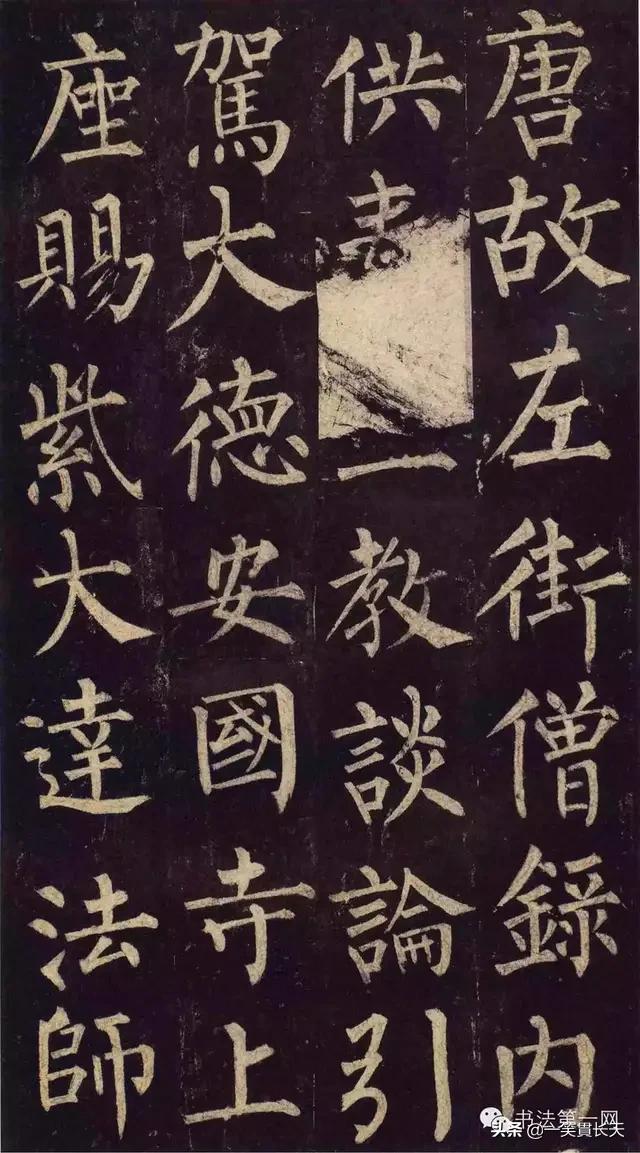 唐故左街僧錄內
供教談論引
駕大德安國寺上
座賜紫大達法師
书法第一网
头条 @一笑貫长